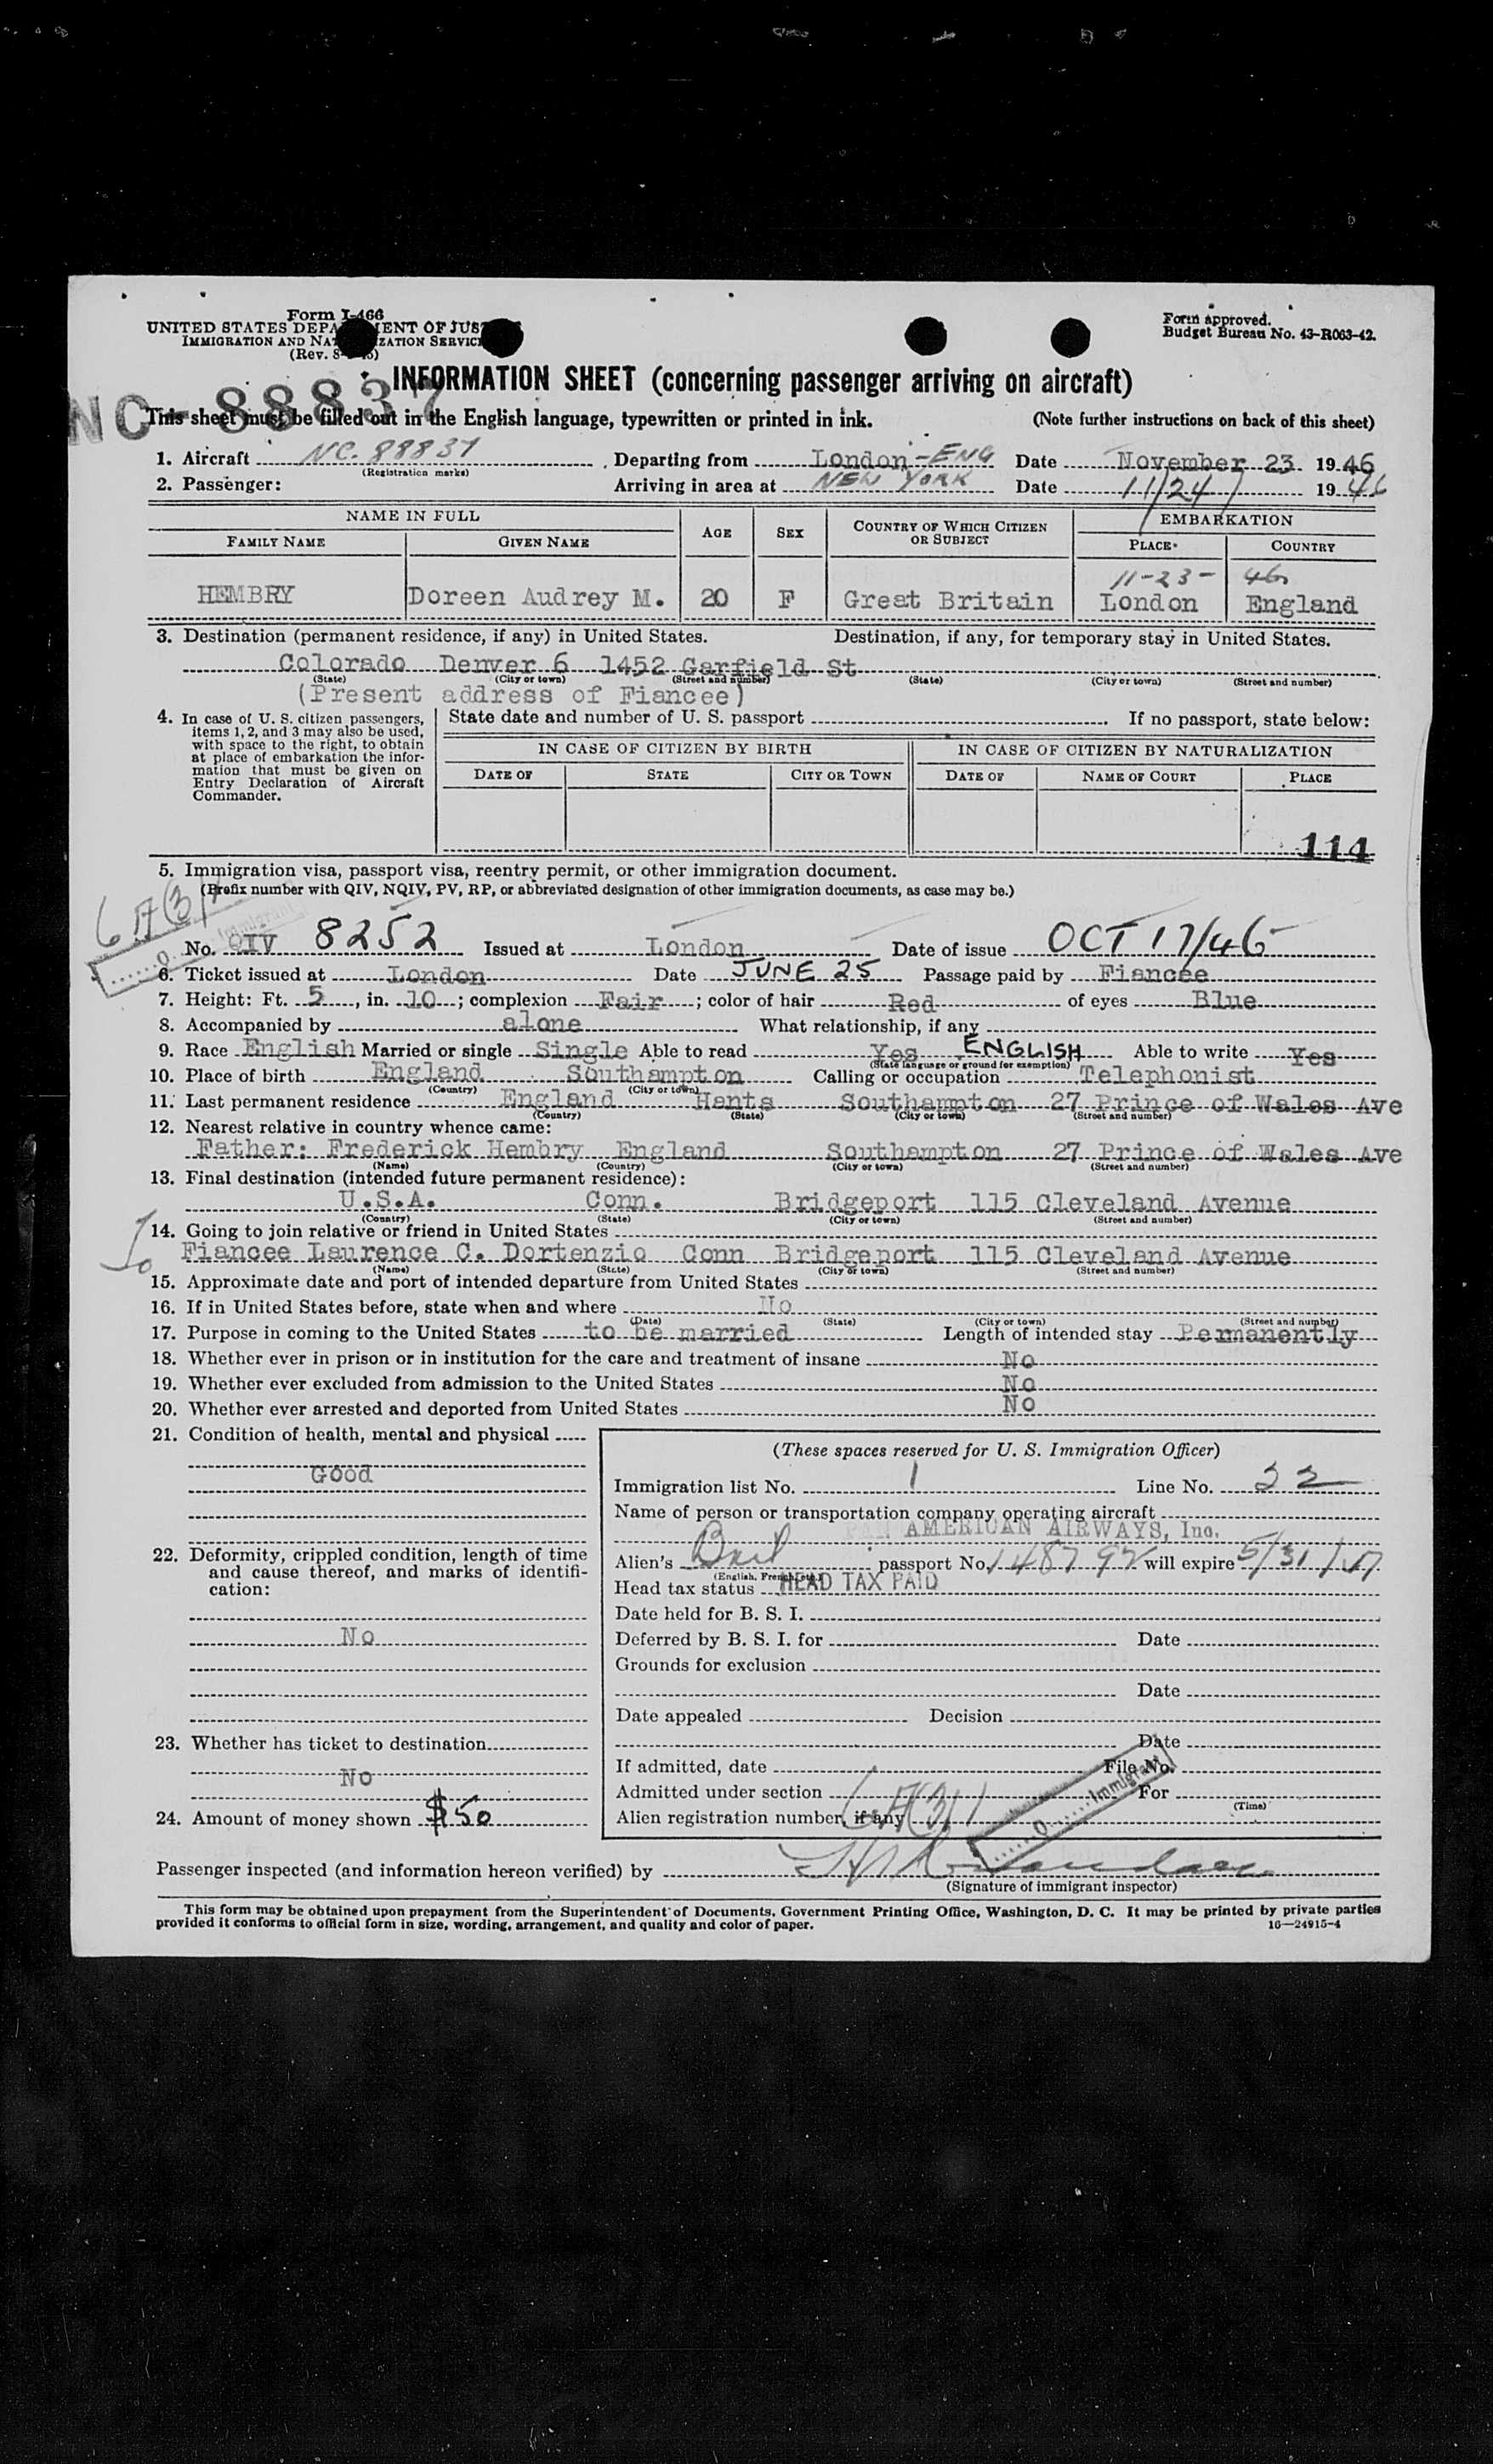 Form I-466
UNITED STATES DEPA ENT OF JUS
IMMIGRATION AND NAT ZATION SERVIC
(Rev. 8- )
Form approved.
Budget Bureau No. 43-R063-42.
INFORMATION SHEET (concerning passenger arriving on aircraft)
NC-88837
This sheet must be filled out in the English language, typewritten or printed in ink. (Note further instructions on back of this sheet)
1. Aircraft NC. 88837 Departing from London-ENG Date November 23 1946
(Registration marks)
2. Passenger: Arriving in area at NEW YORK Date 11/24/ 1946
NAME IN FULL AGE SEX COUNTRY OF WHICH CITIZEN OR SUBJECT EMBARKATION
FAMILY NAME GIVEN NAME PLACE COUNTRY
11-23- 46
HEMBRY Doreen Audrey M. 20 F Great Britain London England
3. Destination (permanent residence, if any) in United States. Destination, if any, for temporary stay in United States.
Colorado Denver 6 1452 Garfield St
(State) (City or town) (Street and number) (State) (City or town) (Street and number)
(Present address of Fiancee)
4. In case of U. S. citizen passengers, items 1, 2, and 3 may also be used, with space to the right, to obtain at place of embarkation the information that must be given on Entry Declaration of Aircraft Commander.
State date and number of U. S. passport If no passport, state below:
IN CASE OF CITIZEN BY BIRTH IN CASE OF CITIZEN BY NATURALIZATION
DATE OF STATE CITY OR TOWN DATE OF NAME OF COURT PLACE
114
5. Immigration visa, passport visa, reentry permit, or other immigration document.
(Prefix number with QIV, NQIV, PV, RP, or abbreviated designation of other immigration documents, as case may be.)
No. QIV 8252 Issued at London Date of issue OCT 17/46
6. Ticket issued at London Date JUNE 25 Passage paid by Fiancée
7. Height: Ft. 5, in. 10; complexion Fair; color of hair Red of eyes Blue
8. Accompanied by alone What relationship, if any
9. Race English Married or single Single Able to read Yes ENGLISH Able to write Yes
(State language or ground for exemption)
10. Place of birth England Southampton Calling or occupation Telephonist
(Country) (City or town)
11. Last permanent residence England Hants Southampton 27 Prince of Wales Ave
(Country) (State) (City or town) (Street and number)
12. Nearest relative in country whence came:
Father: Frederick Hembry England Southampton 27 Prince of Wales Ave
(Name) (Country) (City or town) (Street and number)
13. Final destination (intended future permanent residence):
U.S.A. Conn. Bridgeport 115 Cleveland Avenue
(Country) (State) (City or town) (Street and number)
14. Going to join relative or friend in United States
Fiancee Laurence C. Dortenzio Conn Bridgeport 115 Cleveland Avenue
(Name) (State) (City or town) (Street and number)
15. Approximate date and port of intended departure from United States
16. If in United States before, state when and where No
(Date) (State) (City or town) (Street and number)
17. Purpose in coming to the United States to be married Length of intended stay Permanently
18. Whether ever in prison or in institution for the care and treatment of insane No
19. Whether ever excluded from admission to the United States No
20. Whether ever arrested and deported from United States No
21. Condition of health, mental and physical
Good
22. Deformity, crippled condition, length of time and cause thereof, and marks of identification:
No
23. Whether has ticket to destination
No
24. Amount of money shown $50
(These spaces reserved for U. S. Immigration Officer)
Immigration list No. 1 Line No. 22
Name of person or transportation company operating aircraft
PAN AMERICAN AIRWAYS, Inc.
Alien's Brit passport No. 148792 will expire 5/31/47
(English, French, etc.)
Head tax status HEAD TAX PAID
Date held for B. S. I.
Deferred by B. S. I. for Date
Grounds for exclusion
Date
Date appealed Decision
Date
If admitted, date File No.
Admitted under section For
(Time)
Alien registration number, if any
Immigrant
Passenger inspected (and information hereon verified) by
(Signature of immigrant inspector)
This form may be obtained upon prepayment from the Superintendent of Documents, Government Printing Office, Washington, D. C. It may be printed by private parties
provided it conforms to official form in size, wording, arrangement, and quality and color of paper. 16—24915-4